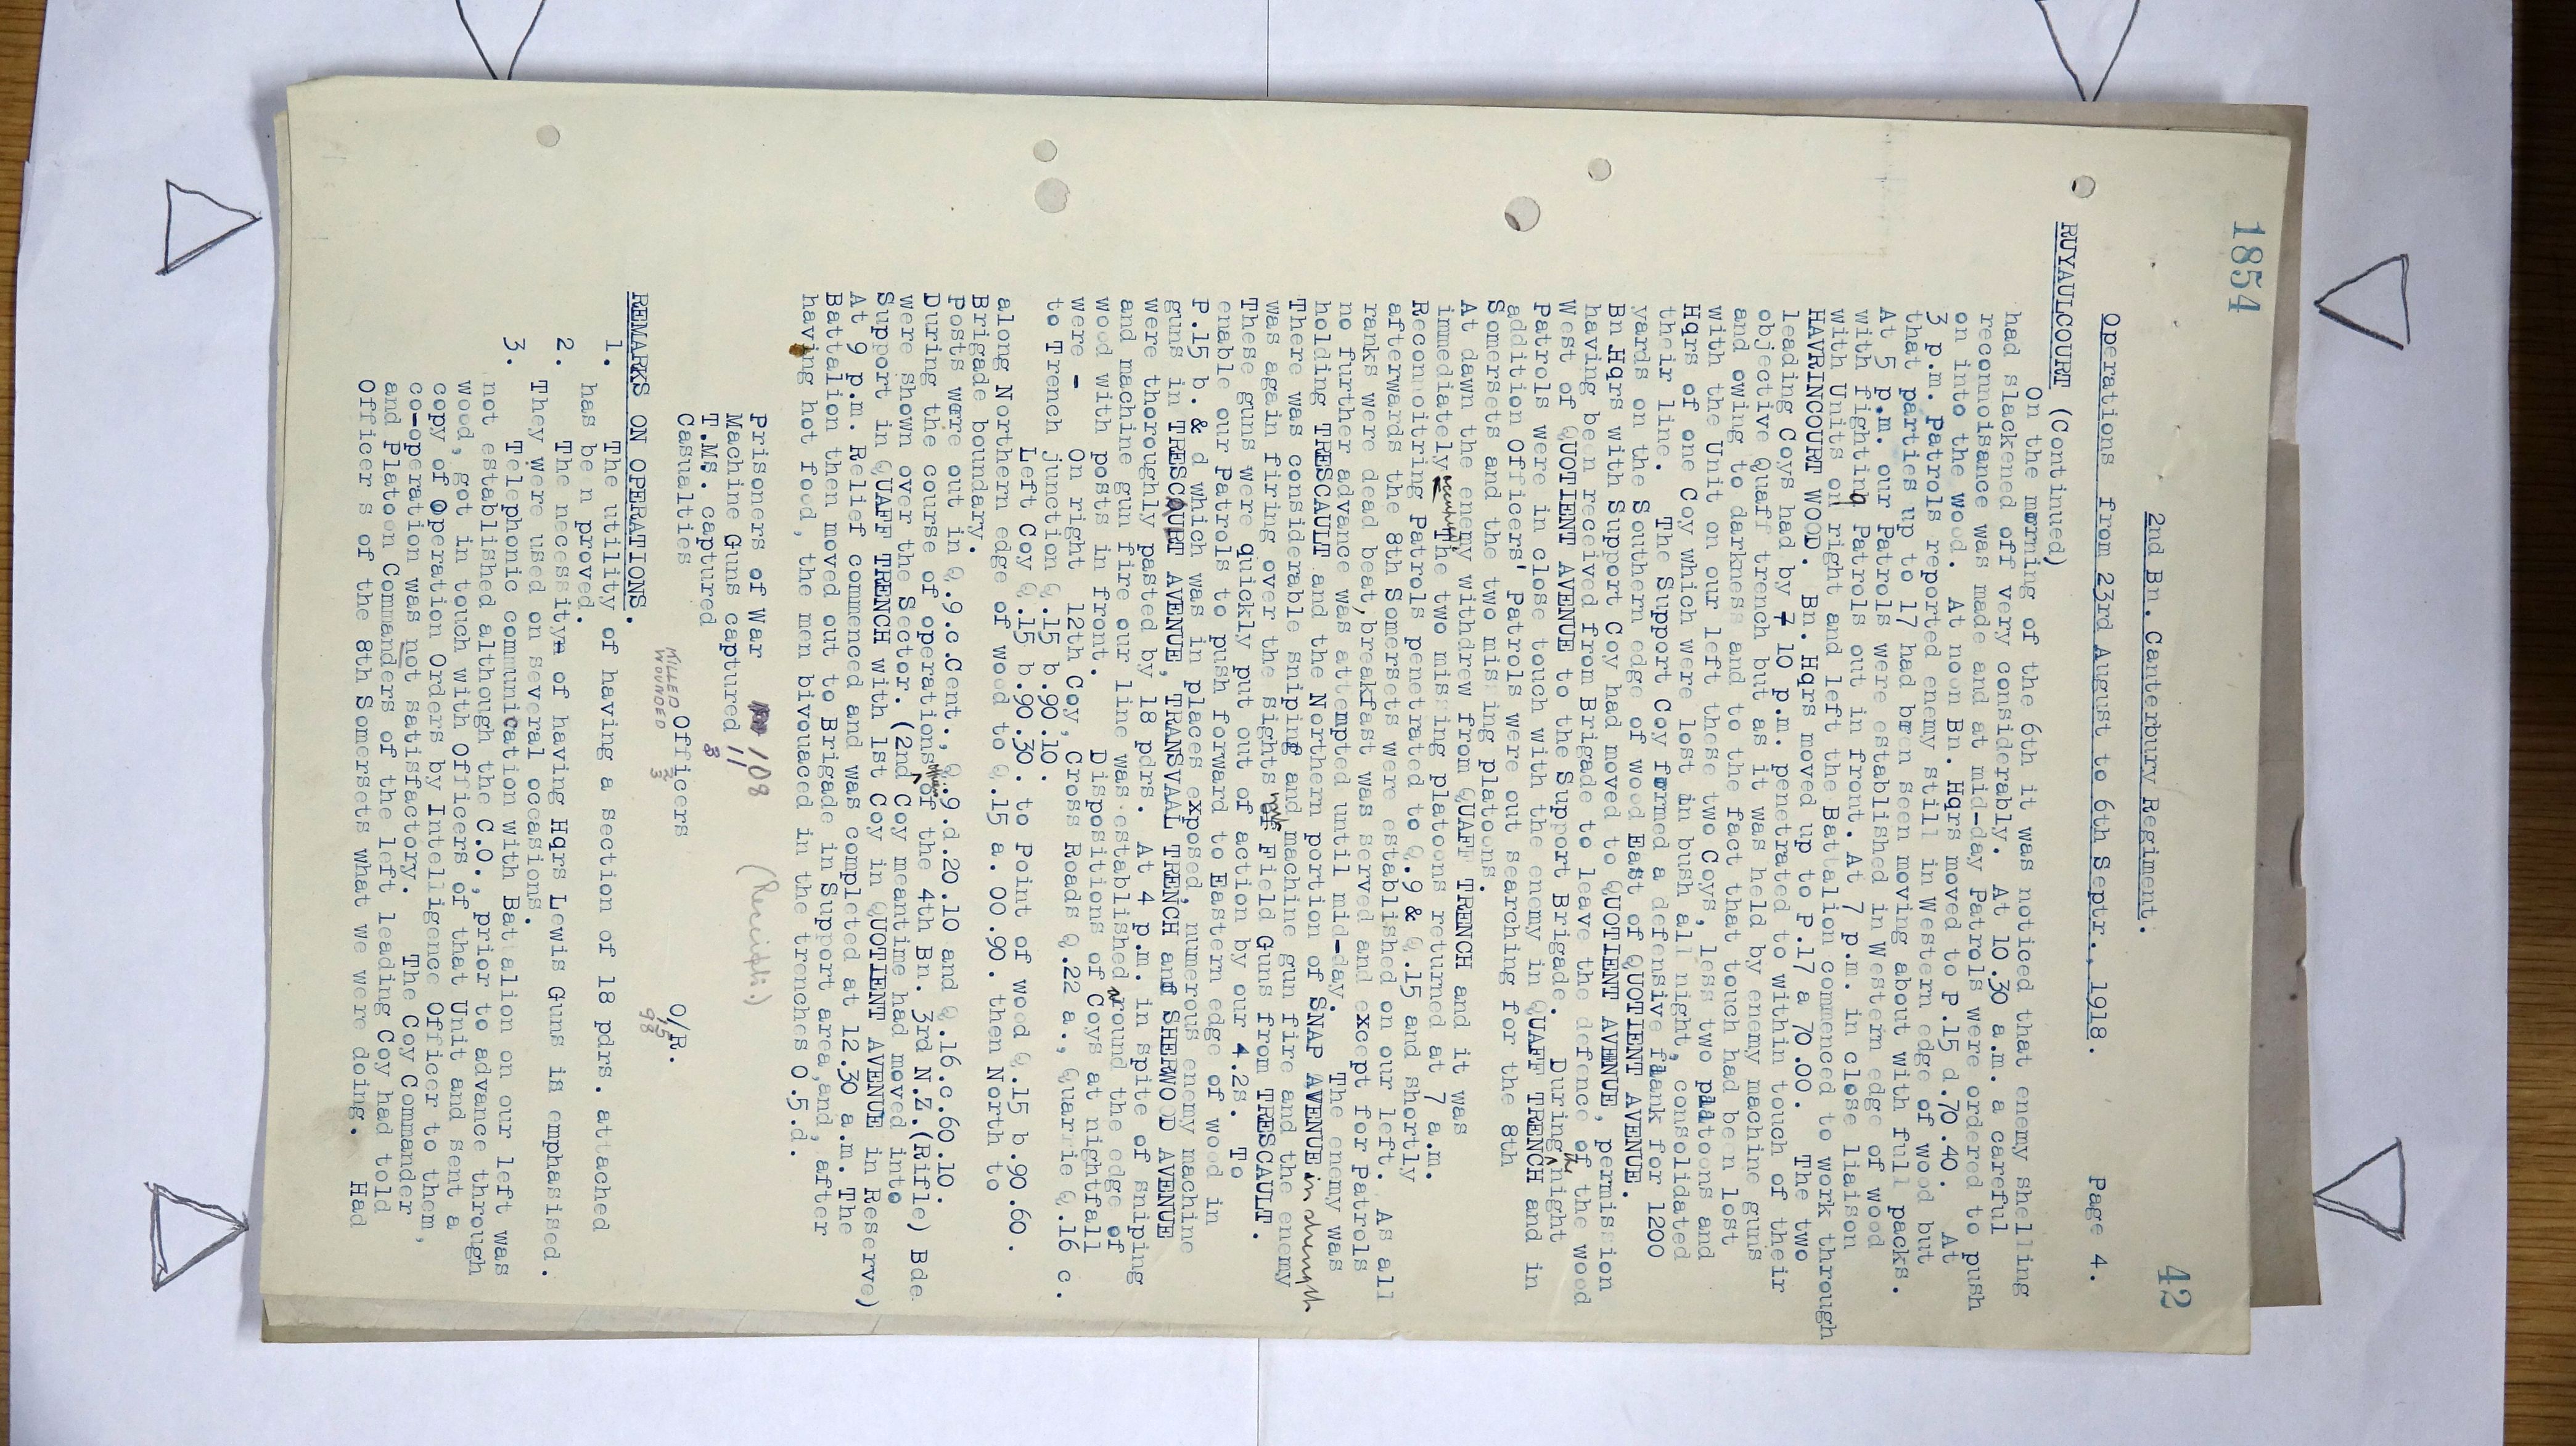 1854
42
2nd Bn. Canterbury Regiment.
Operations from 23rd August to 6th Septr., 1918. Page 4.
RUYAULCOURT (Continued)
On the morning of the 6th it was noticed that enemy shelling
had slackened off very considerably. At 10.30 a.m. a careful
reconnoisance was made and at mid-day Patrols were ordered to push
on into the wood. At noon Bn. Hqrs moved to P.15 d.70.40. At
3 p.m. Patrols reported enemy still in Western edge of wood but
that parties up to 17 had been seen moving about with full packs.
At 5 p.m. our Patrols were established in Western edge of wood
with fighting Patrols out in front. At 7 p.m. in close liaison
with Units on right and left the Battalion commenced to work through
HAVRINCOURT WOOD. Bn. Hqrs moved up to P.17 a 70.00. The two
leading Coys had by 7 10 p.m. penetrated to within touch of their
objective Quaff trench but as it was held by enemy machine guns
and owing to darkness and to the fact that touch had been lost
with the Unit on our left these two Coys, less two platoons and
Hqrs of one Coy which were lost in bush all night, consolidated
their line. The Support Coy formed a defensive flank for 1200
yards on the Southern edge of wood East of QUOTIENT AVENUE.
Bn Hqrs with Support Coy had moved to QUOTIENT AVENUE, permission
having been received from Brigade to leave the defence of the wood
West of QUOTIENT AVENUE to the Support Brigade. During the night
Patrols were in close touch with the enemy in QUAFF TRENCH and in
addition Officers' Patrols were out searching for the 8th
Somersets and the two missing platoons.
At dawn the enemy withdrew from QUAFF TRENCH and it was
immediately The two missing platoons returned at 7 a.m.
Reconnoitring Patrols penetrated to Q.9 & Q.15 and shortly
afterwards the 8th Somersets were established on our left. As all
ranks were dead beat, breakfast was served and except for Patrols
no further advance was attempted until mid-day. The enemy was
holding TRESCAULT and the Northern portion of SNAP AVENUE in strength
There was considerable sniping and machine gun fire and the enemy
was again firing over the sights Field Guns from TRESCAULT.
These guns were quickly put out of action by our 4.2s. To
enable our Patrols to push forward to Eastern edge of wood in
P.15 b. & d which was in places exposed, numerous enemy machine
guns in TRESCAULT AVENUE, TRANSVAAL TRENCH and SHERWOOD AVENUE
were thoroughly pasted by 18 pdrs. At 4 p.m. in spite of sniping
and machine gun fire our line was established around the edge of
wood with posts in front. Dispositions of Coys at nightfall
were - On right 12th Coy, Cross Roads Q.22 a., Quarrie Q.16 c.
to Trench junction Q.15 b.90.10.
Left Coy Q.15 b.90.30. to Point of wood Q.15 b.90.60.
along Northern edge of wood to Q.15 a. 00.90. then North to
Brigade boundary.
Posts were out in Q.9.c.Cent., Q.9.d.20.10 and Q.16.c.60.10.
During the course of operations of the 4th Bn. 3rd N.Z.(Rifle) Bde
were shown over the Sector. (2nd Coy meantime had moved into
Support in QUAFF TRENCH with 1st Coy in QUOTIENT AVENUE in Reserve)
At 9 p.m. Relief commenced and was completed at 12.30 a.m. The
Battalion then moved out to Brigade in Support area, and, after
having hot food, the men bivouaced in the trenches O.5.d.
Prisoners of War 108 (Receipts.)
Machine Guns captured 11
T.MS. captured 8
Casualties Officers O/R.
KILLED 2 15
WOUNDED 3 98
REMARKS ON OPERATIONS.
1. The utility of having a section of 18 pdrs. attached
has been proved.
2. The necessity of having Hqrs Lewis Guns is emphasised.
They were used on several occasions.
3. Telephonic communication with Battalion on our left was
not established although the C.O., prior to advance through
wood, got in touch with Officers of that Unit and sent a
copy of Operation Orders by Intelligence Officer to them,
co-operation was not satisfactory. The Coy Commander
and Platoon Commanders of the left leading Coy had told
Officers of the 8th Somersets what we were doing. Had